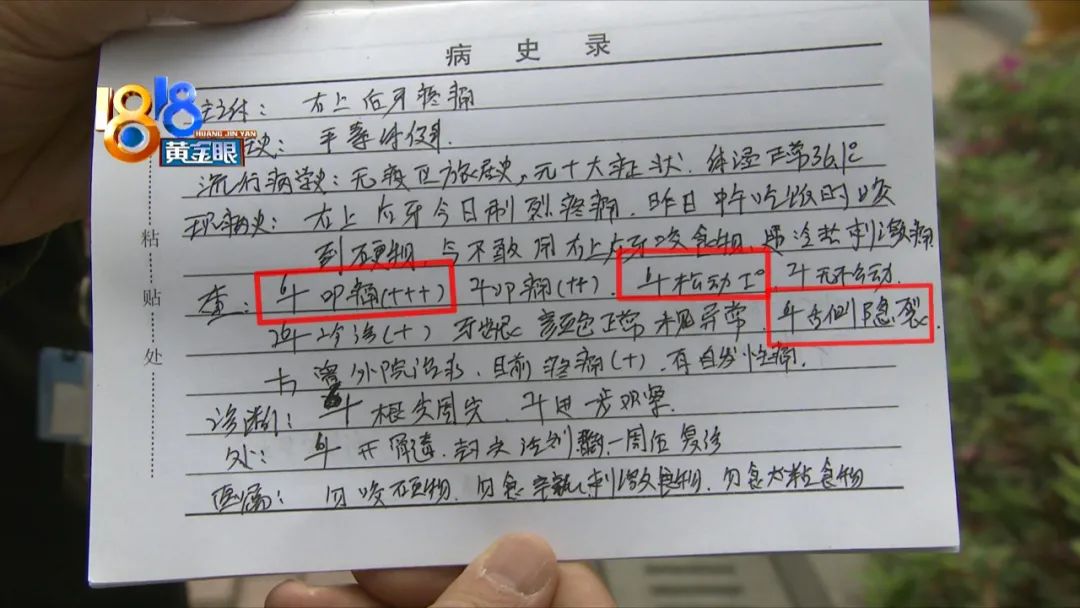 病 史 录
1818
HUANG JIN YAN
黄金眼
主诉: 右上后牙疼痛
史: 平素体健
流行病学史: 无疫区旅居史, 无十大症状. 体温正常36.1°
现病史: 右上后牙今日剧烈疼痛. 昨日中午吃饭时咬
到硬物, 今不敢用右上后牙咬食物, 遇冷热刺激痛
查: 6 叩痛(+++) 叩痛(++). 6 松动I° 无松动.
冷(+) 牙龈颜色正常未见异常. 舌侧隐裂.
外院治疗. 目前疼痛(+). 有自发性痛.
诊断: 6 根尖周炎. 进一步观察.
处: 6 开髓, 封失活剂, 一周后复诊
医嘱: 勿咬硬物. 勿食辛辣刺激食物. 勿食太粘食物
粘
贴
处